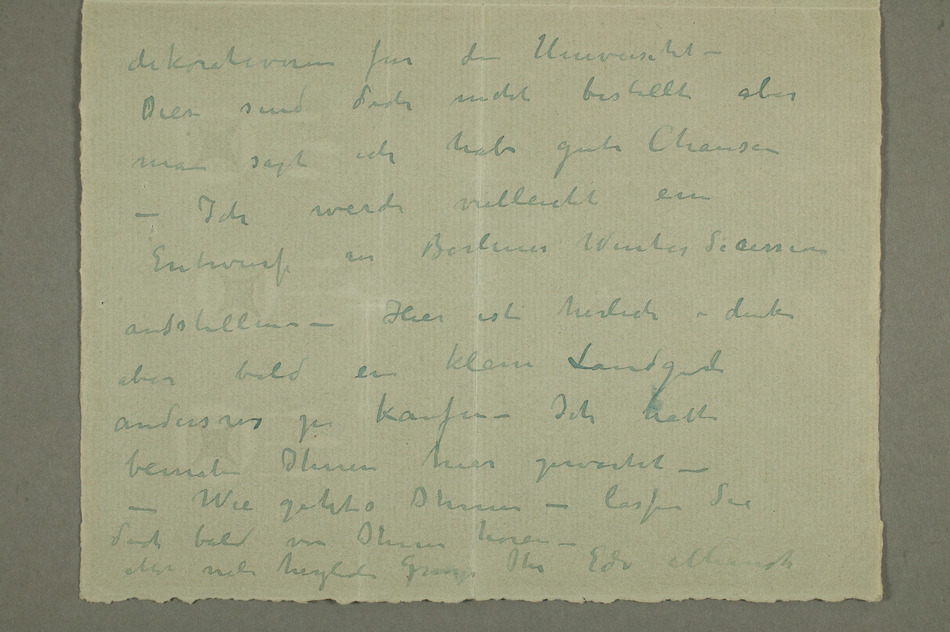 dekorationen für die Universitet —
Dies sind doch nicht bestellt aber
man sagt ich habe gute Chansen
— Ich werde vielleicht ein
Entwurf in Berliner Winter Secession
ausstellen — Hier ist herlich - denke
aber bald ein klein Landgut
anderswo zu kaufen — Ich hatte
beinahe Ihnen hier erwartet —
— Wie gehts Ihnen — lassen Sie
doch bald von Ihnen hören —
Mit viele herzliche Grüsse Ihr Edv Munch